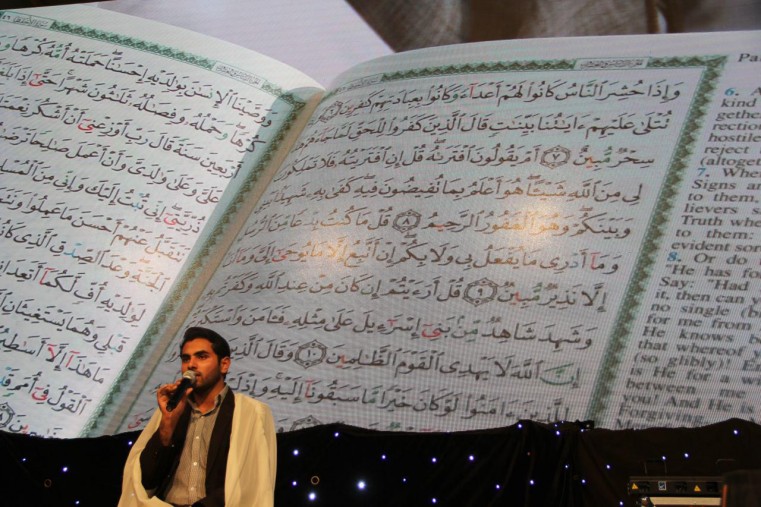 وَإِذَا حُشِرَ ٱلنَّاسُ كَانُوا۟ لَهُمْ أَعْدَآءً وَكَانُوا۟ بِعِبَادَتِهِمْ كَٰفِرِينَ
تُتْلَىٰ عَلَيْهِمْ ءَايَٰتُنَا بَيِّنَٰتٍ قَالَ ٱلَّذِينَ كَفَرُوا۟ لِلْحَقِّ لَمَّا جَآءَهُمْ
سِحْرٌ مُّبِينٌ ٧ أَمْ يَقُولُونَ ٱفْتَرَىٰهُ قُلْ إِنِ ٱفْتَرَيْتُهُۥ فَلَا تَمْلِكُونَ
لِى مِنَ ٱللَّهِ شَيْـًٔا هُوَ أَعْلَمُ بِمَا تُفِيضُونَ فِيهِ كَفَىٰ بِهِۦ شَهِيدًۢا
وَبَيْنَكُمْ وَهُوَ ٱلْغَفُورُ ٱلرَّحِيمُ ٨ قُلْ مَا كُنتُ بِدْعًا مِّنَ ٱلرُّسُلِ
وَمَآ أَدْرِى مَا يُفْعَلُ بِى وَلَا بِكُمْ إِنْ أَتَّبِعُ إِلَّا مَا يُوحَىٰٓ إِلَىَّ وَمَآ أَنَا۠
إِلَّا نَذِيرٌ مُّبِينٌ ٩ قُلْ أَرَءَيْتُمْ إِن كَانَ مِنْ عِندِ ٱللَّهِ وَكَفَرْتُم
وَشَهِدَ شَاهِدٌ مِّنۢ بَنِىٓ إِسْرَٰٓءِيلَ عَلَىٰ مِثْلِهِۦ فَـَٔامَنَ وَٱسْتَكْبَرْتُمْ
إِنَّ ٱللَّهَ لَا يَهْدِى ٱلْقَوْمَ ٱلظَّٰلِمِينَ ١٠ وَقَالَ ٱلَّذِينَ
لِلَّذِينَ ءَامَنُوا۟ لَوْ كَانَ خَيْرًا مَّا سَبَقُونَآ إِلَيْهِ وَإِذْ لَمْ
وَوَصَّيْنَا ٱلْإِنسَٰنَ بِوَٰلِدَيْهِ إِحْسَٰنًا حَمَلَتْهُ أُمُّهُۥ كُرْهًا
كُرْهًا وَحَمْلُهُۥ وَفِصَٰلُهُۥ ثَلَٰثُونَ شَهْرًا حَتَّىٰٓ إِذَا بَلَغَ
أَرْبَعِينَ سَنَةً قَالَ رَبِّ أَوْزِعْنِىٓ أَنْ أَشْكُرَ نِعْمَتَكَ
عَلَىَّ وَعَلَىٰ وَٰلِدَىَّ وَأَنْ أَعْمَلَ صَٰلِحًا تَرْضَىٰهُ
ذُرِّيَّتِىٓ إِنِّى تُبْتُ إِلَيْكَ وَإِنِّى مِنَ ٱلْمُسْلِمِينَ
نَتَقَبَّلُ عَنْهُمْ أَحْسَنَ مَا عَمِلُوا۟
ٱلْجَنَّةِ وَعْدَ ٱلصِّدْقِ ٱلَّذِى كَانُوا۟
لِوَٰلِدَيْهِ أُفٍّ لَّكُمَآ أَتَعِدَانِنِىٓ
قَبْلِى وَهُمَا يَسْتَغِيثَانِ
مَا هَٰذَآ إِلَّآ أَسَٰطِيرُ
ٱلْقَوْلُ فِىٓ أُمَمٍ قَدْ
6.
kind
gethe
rection
hostile
reject
(altoget
7. Whe
Signs ar
to them,
lievers s
Truth whe
to them:
evident sor
8. Or do
"He has fo
Say: "Had
it, then can y
no single (b
for me from
He knows b
that whereof y
so glibly)! E
He for a w
between me
you! And He is
Forgiving